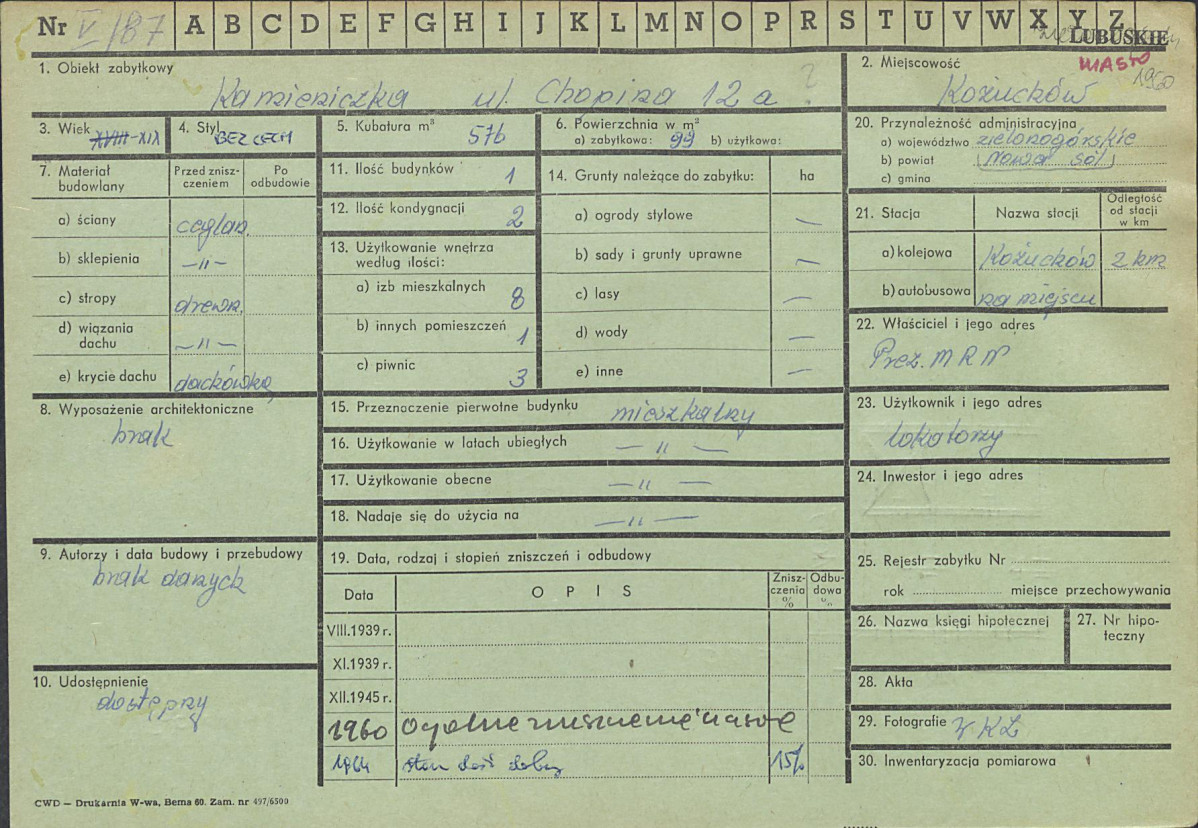 Nr V/187 A B C D E F G H I J K L M N O P R S T U V W X Y Z
LUBUSKIE
MIASTO
1960
1. Obiekt zabytkowy
Kamieniczka ul. Chopina 12 a ?
2. Miejscowość
Kożuchów
3. Wiek XVIII-XIX
4. Styl BEZ CECH
5. Kubatura m³ 576
6. Powierzchnia w m²
a) zabytkowa: 99 b) użytkowa:
20. Przynależność administracyjna
a) województwo zielonogórskie
b) powiat (Nowa Sól)
c) gmina
7. Materiał budowlany
Przed zniszczeniem
Po odbudowie
a) ściany ceglan.
b) sklepienia —„—
c) stropy drewn.
d) wiązania dachu —„—
e) krycie dachu dachówką
11. Ilość budynków 1
12. Ilość kondygnacji 2
13. Użytkowanie wnętrza według ilości:
a) izb mieszkalnych 8
b) innych pomieszczeń 1
c) piwnic 3
14. Grunty należące do zabytku: ha
a) ogrody stylowe —
b) sady i grunty uprawne —
c) lasy —
d) wody —
e) inne —
21. Stacja
Nazwa stacji
Odległość od stacji w km
a) kolejowa Kożuchów 2 km
b) autobusowa na miejscu
22. Właściciel i jego adres
Prez. M R N
8. Wyposażenie architektoniczne
brak
15. Przeznaczenie pierwotne budynku mieszkalny
16. Użytkowanie w latach ubiegłych —„—
17. Użytkowanie obecne —„—
18. Nadaje się do użycia na —„—
23. Użytkownik i jego adres
lokatorzy
24. Inwestor i jego adres
9. Autorzy i data budowy i przebudowy
brak danych
19. Data, rodzaj i stopień zniszczeń i odbudowy
Data
OPIS
Zniszczenia %
Odbudowa %
VIII.1939 r.
XI.1939 r.
XII.1945 r.
1960 Ogólne
1964 stan dość dobry 15%
25. Rejestr zabytku Nr
rok miejsce przechowywania
26. Nazwa księgi hipotecznej
27. Nr hipoteczny
10. Udostępnienie
dostępny
28. Akta
29. Fotografie
30. Inwentaryzacja pomiarowa
CWD — Drukarnia W-wa, Bema 60. Zam. nr 497/6500